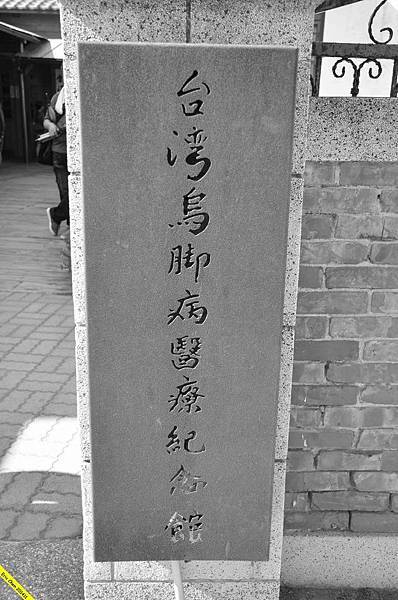 台湾烏脚病醫療紀念館